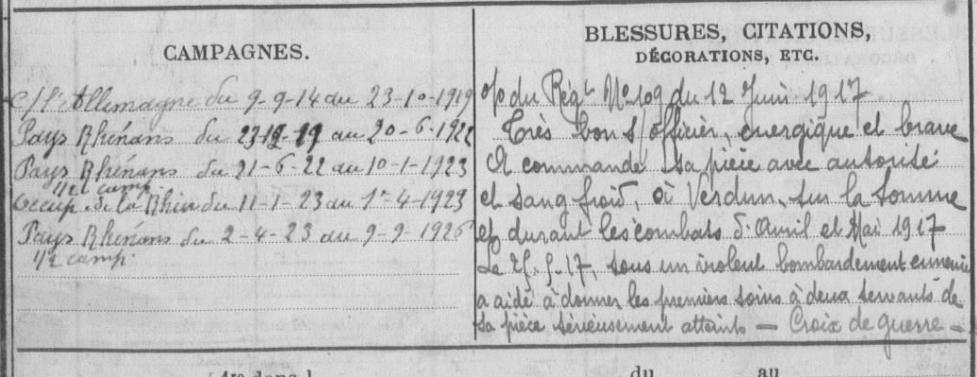 CAMPAGNES.
C/ l'Allemagne du 9-9-14 au 23-10-1919
Pays Rhénans du 23-10-19 au 20-6-1922
Pays Rhénans du 21-6-22 au 10-1-1923
1/2 camp.
Occup. de la Rhin du 11-1-23 au 1er-4-1923
Pays Rhénans du 2-4-23 au 9-9-1926
1/2 camp.
BLESSURES, CITATIONS,
DÉCORATIONS, ETC.
du Régt No 109 du 12 Juin 1917
Très bon s/officier, énergique et brave
A commandé sa pièce avec autorité
et sang froid, à Verdun, sur la Somme
et durant les combats d'Avril et Mai 1917
Le 25-5-17, sous un violent bombardement ennemi
a aidé à donner les premiers soins à deux servants de
sa pièce sérieusement atteints — Croix de guerre —
du
au